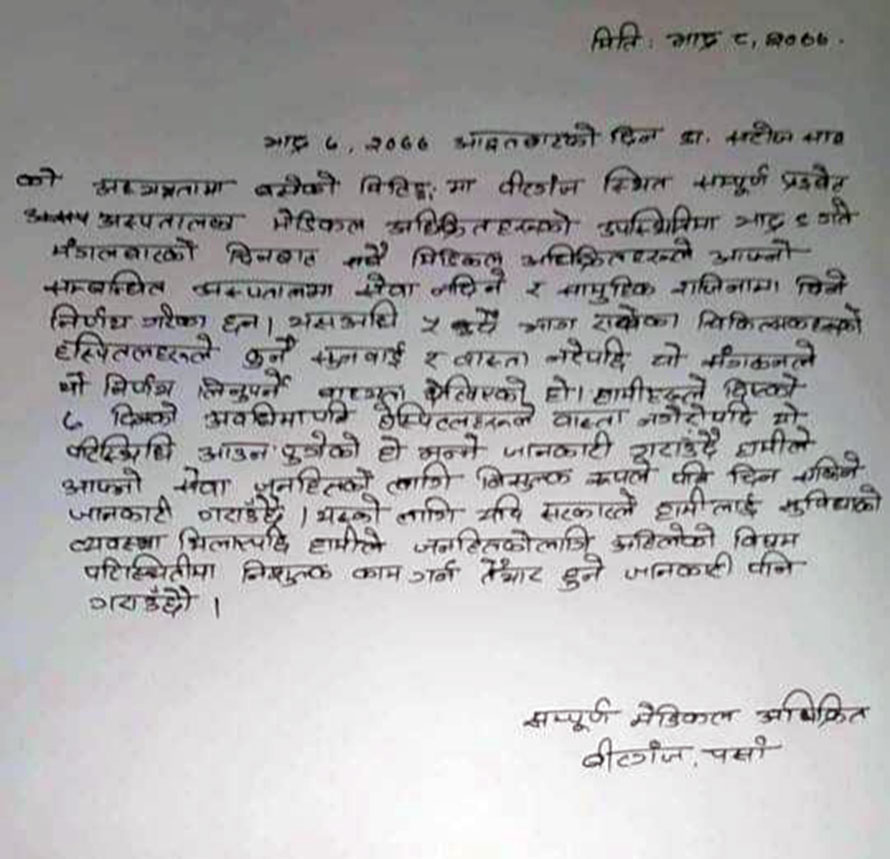 मिति : भाद्र ८, २०७७.
भाद्र ७, २०७७ आइतबारको दिन डा. सरोज साव
को अध्यक्षतामा बसेको मिटिङ्ग मा वीरगंज स्थित सम्पूर्ण प्राइवेट
अस्पतालका मेडिकल अधिक्रितहरुको उपस्थितिमा भाद्र ९ गते
मंगलबारको दिनबाट सबै मेडिकल अधिक्रितहरुले आफ्नो
सम्बन्धित अस्पतालमा सेवा नदिने र सामुहिक राजिनामा दिने
निर्णय गरेका छन्। यसअघि ५ बुदे माग राखेका चिकित्सकहरुको
हस्पिटलहरुले कुनै सुनवाई र वास्ता नगरेपछि यो
यो निर्णय लिनुपर्ने बाध्यता हो। हामीहरुले दिएको
७ दिनको अवधिमापनि हस्पिटलहरुले वास्ता नगरेपछि यो
परिस्थिति आउन पुगेको हो भन्ने जानकारी गराउँदै हामीले
आफ्नो सेवा जनहितको लागि निसुल्क रूपले पनि दिन सकिने
जानकारी गराउँछौ । यसको लागि यदि सरकारले हामीलाई सुविधाको
व्यवस्था मिलाएपछि हामीले जनहितकोलागि अहिलेको विषम
परिस्थितीमा निशुल्क काम गर्न तैयार हुने जानकारी पनि
गराउँछौ ।
सम्पूर्ण मेडिकल अधिक्रित
बीरगंज, पर्सा